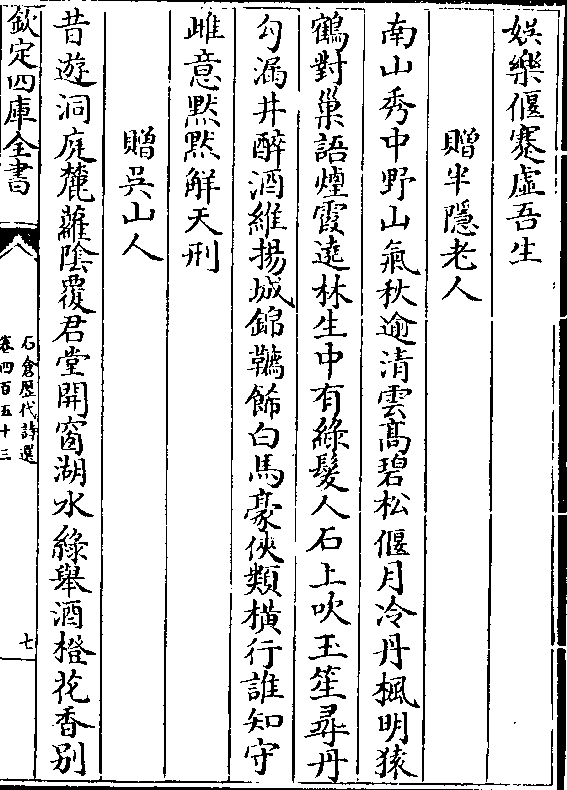 娱樂偃蹇虛吾生
贈半隱老人
南山秀中野山氣秋逾清雲髙碧松偃月冷丹楓明猿
鶴對巢語煙霞遶林生中有綠髮人石上吹玉笙尋丹
勾漏井醉酒維揚城錦韉餙白馬豪俠類橫行誰知守
雌意黙黙觧天刑
贈吳山人
昔遊洞庭麓蘿陰覆君堂開窗湖水綠舉酒橙花香别
欽定四庫全書
石倉歴代詩選
卷四百五十三
七